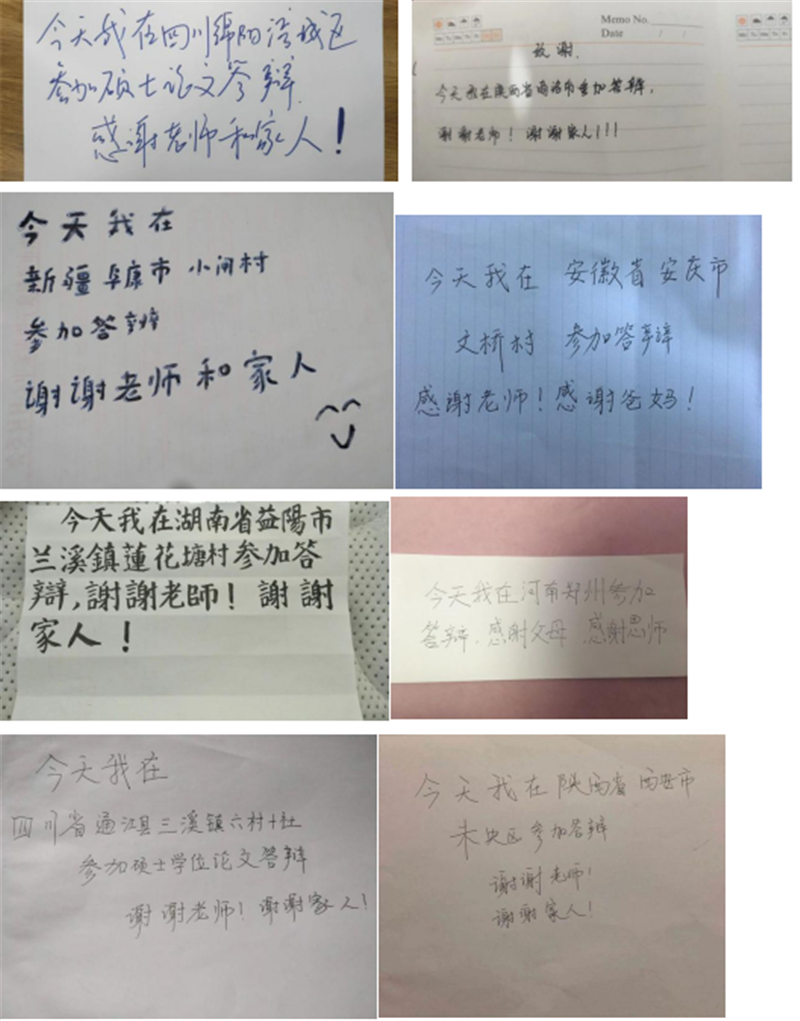 今天我在四川绵阳涪城区
参加硕士论文答辩
感谢老师和家人！
Memo No.
Date / /
致谢.
今天我在陕西省渭南市参加答辩,
谢谢老师！谢谢家人!!!
今天我在
新疆阜康市 小河村
参加答辩
谢谢老师和家人
今天我在 安徽省安庆市
文桥村 参加答辩
感谢老师！感谢爸妈！
今天我在湖南省益陽市
兰溪鎮蓮花塘村参加答
辯,謝謝老師！謝謝
家人！
今天我在河南郑州参加
答辩.感谢父母 感谢恩师
今天我在
四川省通江县三溪镇六村十社
参加硕士学位论文答辩
谢谢老师！谢谢家人！
今天我在陕西省西安市
未央区参加答辩
谢谢老师！
谢谢家人！